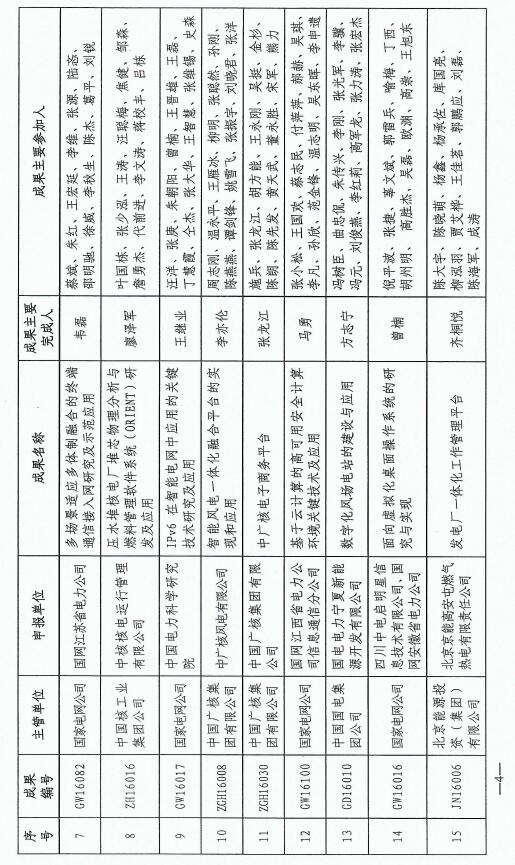 序号 成果编号 主管单位 申报单位 成果名称 成果主要完成人 成果主要参加人
7 GW16082 国家电网公司 国网江苏省电力公司 多场景适应多体制融合的终端通信接入网研究及示范应用 韦磊 蔡斌、朱红、王宏延、李维、张源、陆忞、邵明驰、徐威、李秋生、陈杰、葛平、刘锐
8 ZH16016 中国核工业集团公司 中核核电运行管理有限公司 压水堆核电厂堆芯物理分析与燃料管理软件系统（ORIENT）研发及应用 廖泽军 叶国栋、张少泓、王涛、汪聪梅、焦健、邹森、詹勇杰、代前进、李文涛、蒋校丰、吕栋
9 GW16017 国家电网公司 中国电力科学研究院 IPv6 在智能电网中应用的关键技术研究及应用 王继业 汪洋、张庚、朱朝阳、曾楠、王晋雄、王磊、丁慧霞、仝杰、张大华、王智慧、张维锡、史森
10 ZGH16008 中国广核集团有限公司 中广核风电有限公司 智能风电一体化融合平台的实现和应用 李亦伦 周志刚、温水平、王雁冰、柳明、张聪然、孙刚、陈燕燕、谭剑锋、姚雪飞、张振宇、刘晓君、张洋
11 ZGH16030 中国广核集团有限公司 中国广核集团有限公司 中广核电子商务平台 张龙江 施兵、张龙江、胡方能、王永刚、吴挺、金杉、陈朝、陈先发、黄天武、董永胜、宋军、熊力
12 GW16100 国家电网公司 国网江西省电力公司信息通信分公司 基于云计算的高可用安全计算环境关键技术及应用 马勇 张小松、王国欢、蔡志民、付萍萍、郝赫、吴琪、李凡、孙欣、范金锋、温志明、吴东晖、李申遣
13 GD16010 中国国电集团公司 国电电力宁夏新能源开发有限公司 数字化风场电站的建设与应用 方志宁 冯树臣、曲忠侃、朱传兴、李刚、张光军、李骥、冯元、刘俊燕、李红莉、高军龙、张力涛、张宏杰
14 GW16016 国家电网公司 四川中电启明星信息技术有限公司、国网安徽省电力公司 面向虚拟化桌面操作系统的研究与实现 曾楠 倪平波、张捷、辜文斌、郭雷兵、喻梅、丁西、胡州明、高胜杰、吴磊、欧渊、高崇、王旭东
15 JN16006 北京能源投资（集团）有限公司 北京京能高安屯燃气热电有限责任公司 发电厂一体化工作管理平台 齐桐悦 陈大宇、陈晓萌、杨鑫、杨承佐、库国亮、柳泓羽、贾文桦、王佳茗、郭鹏应、刘磊、陈海军、成涛
—4—